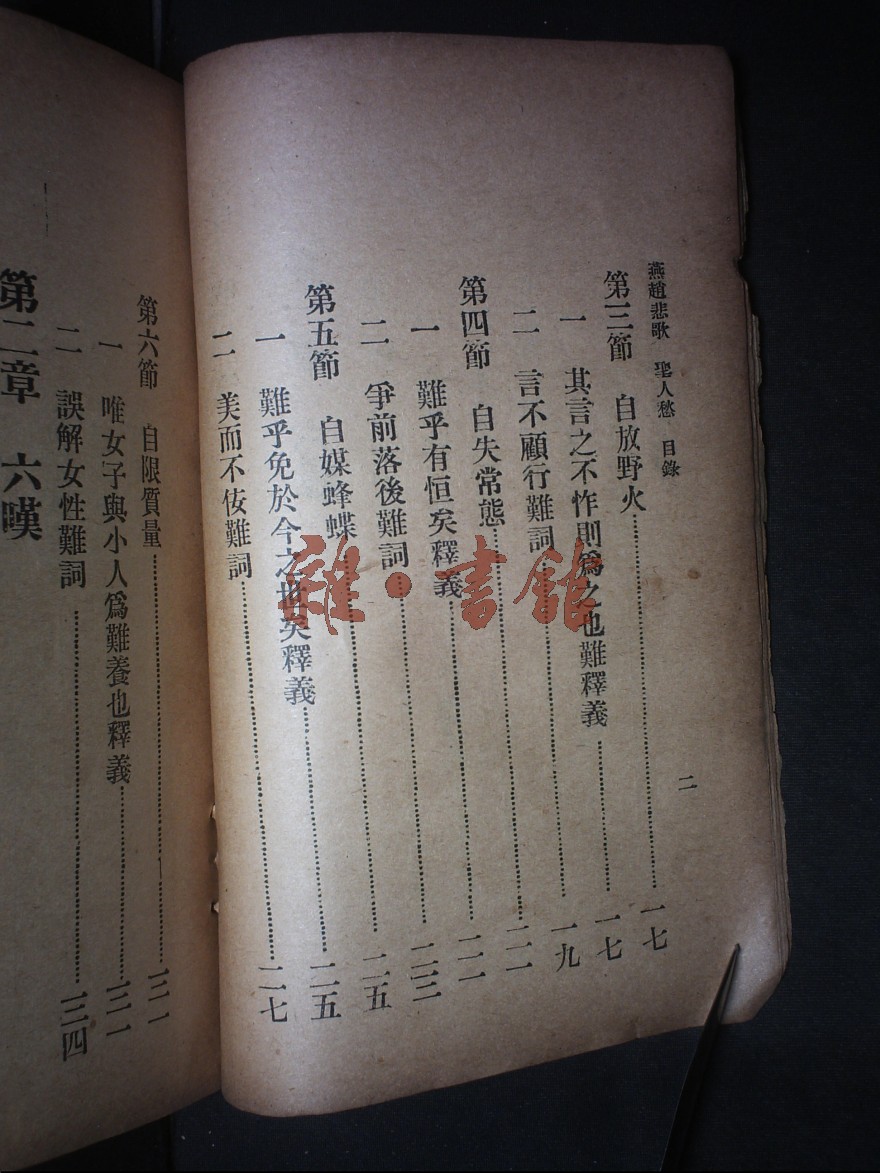 燕趙悲歌 聖人愁 目錄
二
第三節 自放野火 一七
一 其言之不怍則爲之也難釋義 一七
二 言不顧行難詞 一九
第四節 自失常態 二一
一 難乎有恒矣釋義
二 爭前落後難詞
第五節 自媒蜂蝶 二五
一 難乎免於今之世矣釋義 二五
二 美而不佞難詞 二七
第六節 自限質量 三一
一 唯女子與小人爲難養也釋義 三一
二 誤解女性難詞 三四
第二章 六嘆
雜·書館